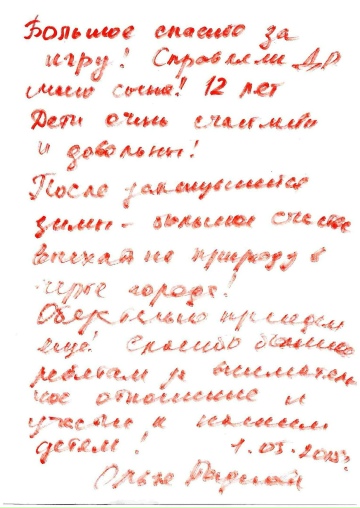 Большое спасибо за
игру! Справляли ДР
сына! 12 лет
Дети очень счастливы
и довольны!
После затянувшейся
зимы - большое счастье
выехать на природу в
черте города!
Обязательно приедем
еще! Спасибо большое
ребятам за вниматель
ное отношение и
участие к нашим
детям! 1.05.2013г.
Ольга